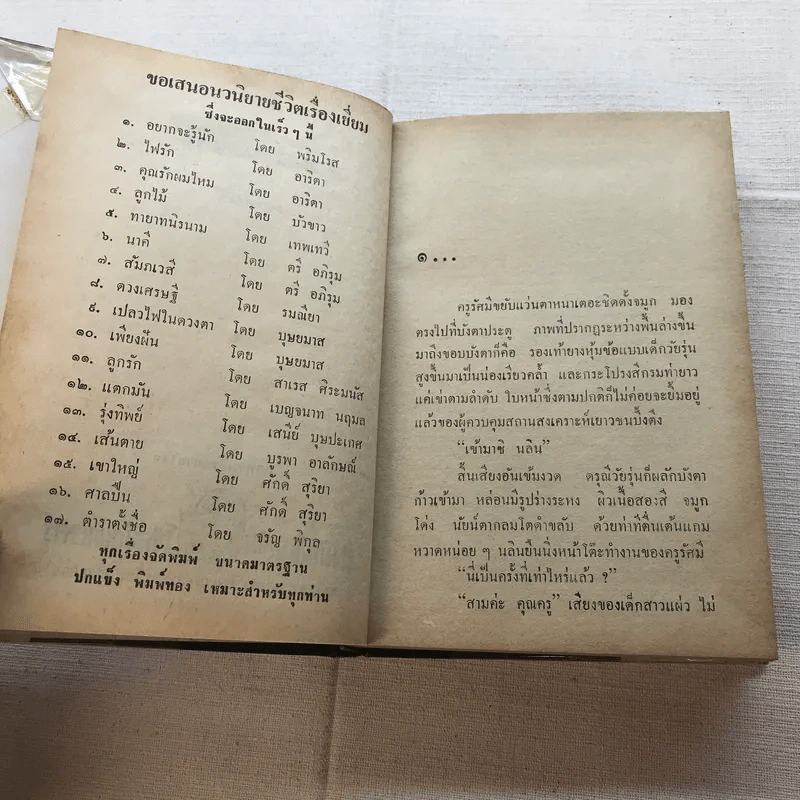 ขอเสนอนวนิยายชีวิตเรื่องเยี่ยม
ซึ่งจะออกในเร็ว ๆ นี้
๑. อยากจะรู้นัก โดย พริมโรส
๒. ไฟรัก โดย อาริตา
๓. คุณรักผมไหม โดย อาริตา
๔. ลูกไม้ โดย บัวขาว
๕. ทายาทนิรนาม โดย เทพเทวี
๖. นาคี โดย ตรี อภิรุม
๗. สัมภเวสี โดย ตรี อภิรุม
๘. ดวงเศรษฐี โดย รมณียา
๙. เปลวไฟในดวงตา โดย บุษยมาส
๑๐. เพียงฝัน โดย บุษยมาส
๑๑. ลูกรัก โดย สาเรส ศิระมนัส
๑๒. แตกมัน โดย เบญจนาท นฤมล
๑๓. รุ่งทิพย์ โดย เสนีย์ บุษปะเกศ
๑๔. เส้นตาย โดย บูรพา อาลักษณ์
๑๕. เขาใหญ่ โดย ศักดิ์ สุริยา
๑๖. ศาลปืน โดย ศักดิ์ สุริยา
๑๗. ตำราตั้งชื่อ โดย จรัญ พิกุล
ทุกเรื่องจัดพิมพ์ ขนาดมาตรฐาน
ปกแข็ง พิมพ์ทอง เหมาะสำหรับทุกท่าน
๑...
ครูรัศมีขยับแว่นตาหนาเตอะชิดดั้งจมูก มอง
ตรงไปที่บังตาประตู ภาพที่ปรากฏระหว่างพื้นล่างขึ้น
มาถึงขอบบังตาก็คือ รองเท้ายางหุ้มข้อแบบเด็กวัยรุ่น
สูงขึ้นมาเป็นน่องเรียวคล้ำ และกระโปรงสีกรมท่ายาว
แค่เข่าตามลำดับ ใบหน้าซึ่งตามปกติก็ไม่ค่อยจะยิ้มอยู่
แล้วของผู้ควบคุมสถานสงเคราะห์เยาวชนบึ้งตึง
“เข้ามาซิ นลิน”
สิ้นเสียงอันเข้มงวด ดรุณีวัยรุ่นก็ผลักบังตา
ก้าวเข้ามา หล่อนมีรูปร่างระหง ผิวเนื้อสองสี จมูก
โด่ง นัยน์ตากลมโตดำขลับ ด้วยท่าทีตื่นเต้นแกม
หวาดหน่อย ๆ นลินยืนนิ่งหน้าโต๊ะทำงานของครูรัศมี
“นี่เป็นครั้งที่เท่าไหร่แล้ว ?”
“สามค่ะ คุณครู” เสียงของเด็กสาวแผ่ว ไม่